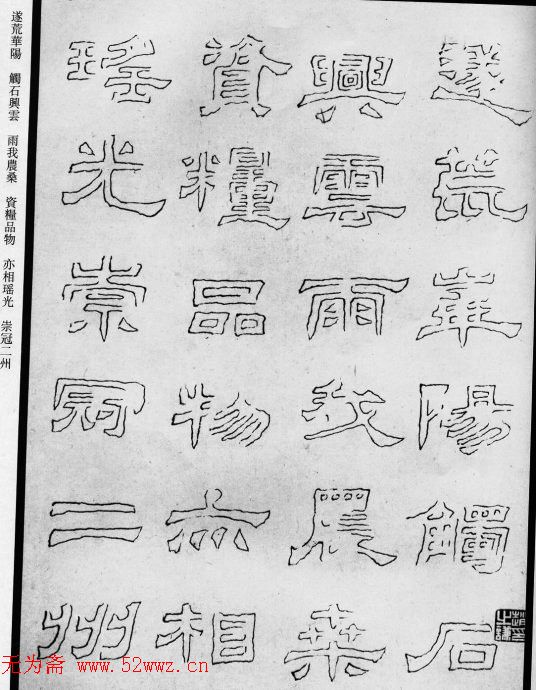 遂荒華陽觸石
興雲雨我農桑
資糧品物亦相
瑤光崇冠二州
遂荒華陽 觸石興雲 雨我農桑 資糧品物 亦相瑶光 崇冠二州
无为斋 www.52wwz.cn